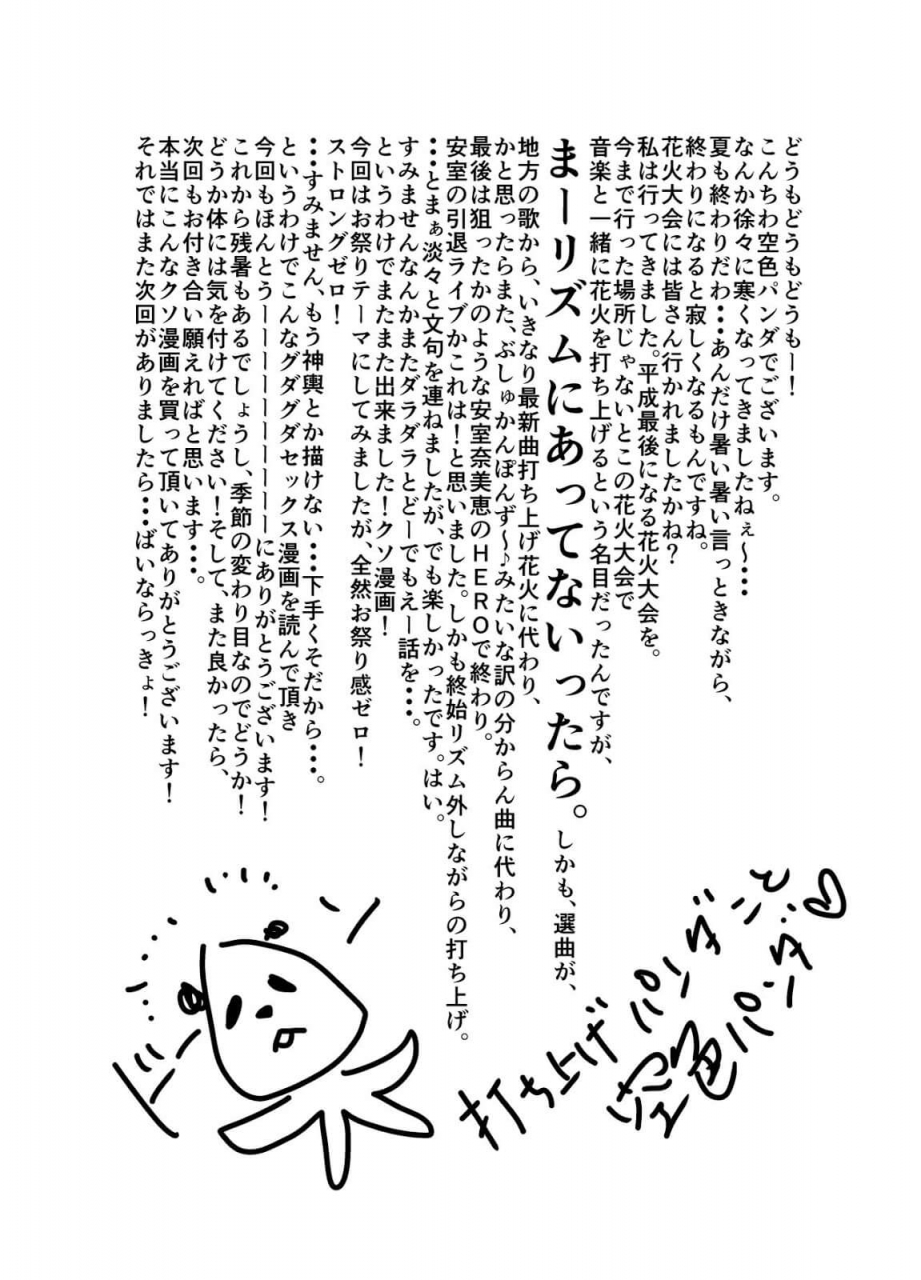 どうもどうもどうもー！
こんちわ空色パンダでございます。
なんか徐々に寒くなってきましたねぇ～・・・
夏も終わりだわ・・・あんだけ暑い暑い言っときながら、
終わりになると寂しくなるもんですね。
花火大会には皆さん行かれましたかね？
私は行ってきました。平成最後になる花火大会を。
今まで行った場所じゃないとこの花火大会で
音楽と一緒に花火を打ち上げるという名目だったんですが、
まーリズムにあってないったら。しかも、選曲が、
地方の歌から、いきなり最新曲打ち上げ花火に代わり、
かと思ったらまた、ぶしゅかんぽんず～♪みたいな訳の分からん曲に代わり、
最後は狙ったかのような安室奈美恵のＨＥＲＯで終わり。
安室の引退ライブかこれは！と思いました。しかも終始リズム外しながらの打ち上げ。
・・・とまぁ淡々と文句を連ねましたが、でも楽しかったです。はい。
すみませんなんかまたダラダラとどーでもえー話を・・・。
というわけでまたまた出来ました！クソ漫画！
今回はお祭りテーマにしてみましたが、全然お祭り感ゼロ！
ストロングゼロ！
・・・すみません、もう神輿とか描けない・・・下手くそだから・・・。
というわけでこんなグダグダセックス漫画を読んで頂き
今回もほんとうーーーーーーーーーにありがとうございます！
これから残暑もあるでしょうし、季節の変わり目なのでどうか！
どうか体には気を付けてください！そして、また良かったら、
次回もお付き合い願えればと思います・・・。
本当にこんなクソ漫画を買って頂いてありがとうございます！
それではまた次回がありましたら・・・ばいならっきょ！
打ち上げパンダこと
空色パンダ♡
ドーン